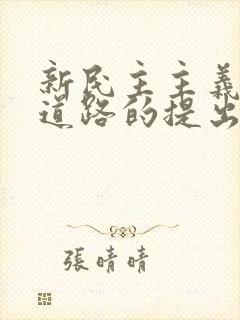 新民主主義
道路的提出
張晴晴